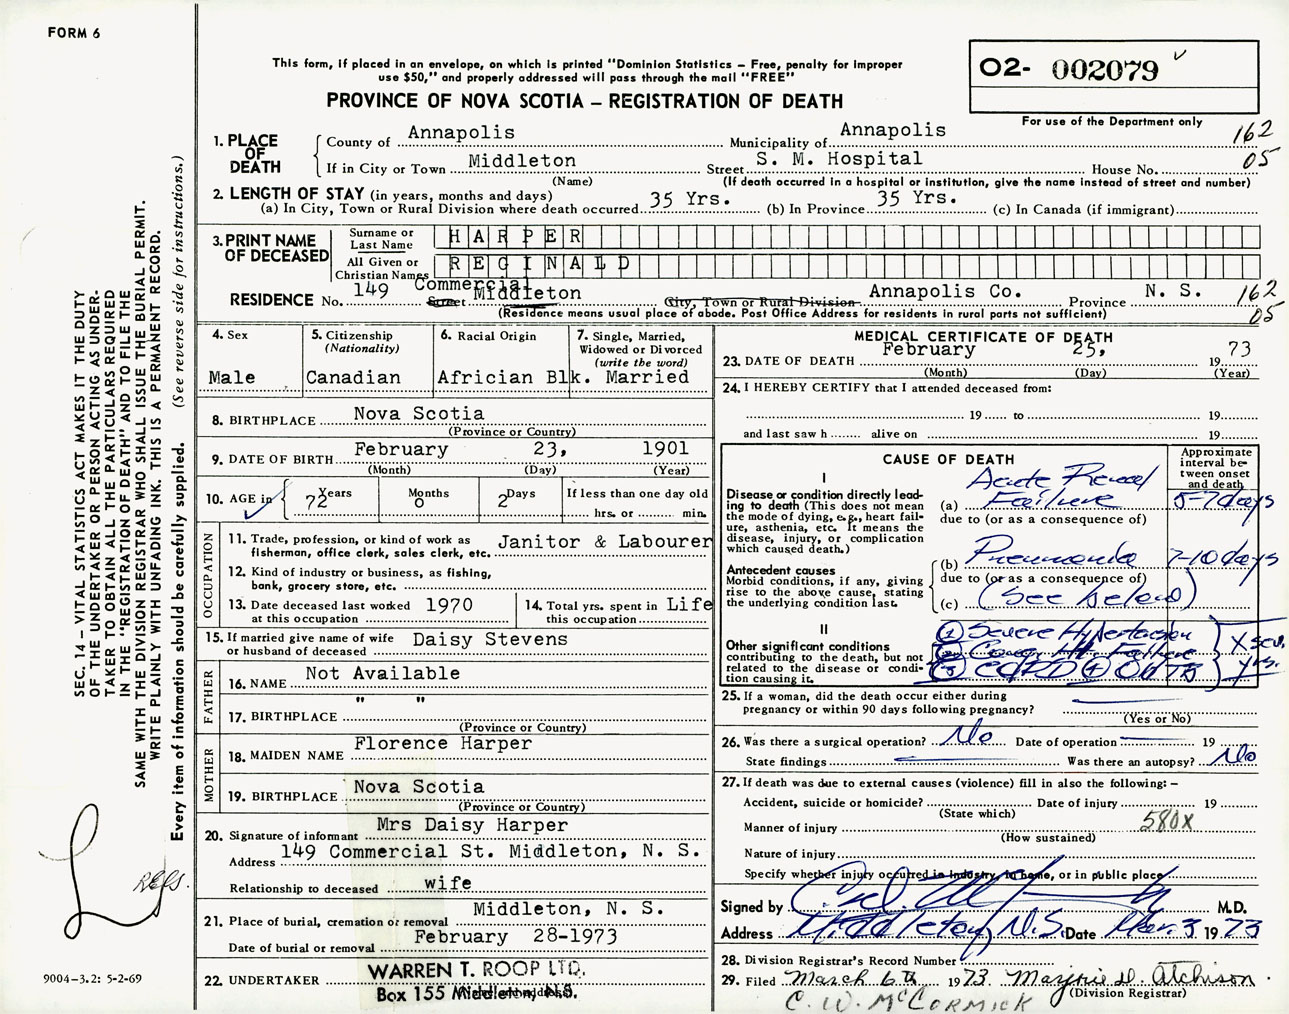 FORM 6
This form, if placed in an envelope, on which is printed "Dominion Statistics – Free, penalty for improper
use $50," and properly addressed will pass through the mail "FREE"
O2- 002079
For use of the Department only
PROVINCE OF NOVA SCOTIA – REGISTRATION OF DEATH
162
05
1. PLACE OF DEATH
County of Annapolis Municipality of Annapolis
If in City or Town Middleton Street S. M. Hospital House No.
(Name) (If death occurred in a hospital or institution, give the name instead of street and number)
2. LENGTH OF STAY (in years, months and days)
(a) In City, Town or Rural Division where death occurred 35 Yrs. (b) In Province 35 Yrs. (c) In Canada (if immigrant)
3. PRINT NAME OF DECEASED
Surname or Last Name HARPER
All Given or Christian Names REGINALD
RESIDENCE No. 149 Commercial Street Middleton City, Town or Rural Division Annapolis Co. Province N. S. 162
05
(Residence means usual place of abode. Post Office Address for residents in rural parts not sufficient)
4. Sex
Male
5. Citizenship
(Nationality)
Canadian
6. Racial Origin
Africian Blk.
7. Single, Married,
Widowed or Divorced
(write the word)
Married
8. BIRTHPLACE Nova Scotia
(Province or Country)
9. DATE OF BIRTH February 23, 1901
(Month) (Day) (Year)
10. AGE in
Years 72
Months 0
Days 2
If less than one day old
hrs. or min.
OCCUPATION
11. Trade, profession, or kind of work as
fisherman, office clerk, sales clerk, etc. Janitor & Labourer
12. Kind of industry or business, as fishing,
bank, grocery store, etc.
13. Date deceased last worked
at this occupation 1970
14. Total yrs. spent in
this occupation Life
15. If married give name of wife
or husband of deceased Daisy Stevens
FATHER
16. NAME Not Available
17. BIRTHPLACE " "
(Province or Country)
MOTHER
18. MAIDEN NAME Florence Harper
19. BIRTHPLACE Nova Scotia
(Province or Country)
20. Signature of informant Mrs Daisy Harper
Address 149 Commercial St. Middleton, N. S.
Relationship to deceased wife
21. Place of burial, cremation or removal Middleton, N. S.
Date of burial or removal February 28-1973
22. UNDERTAKER WARREN T. ROOP LTD.
Box 155 Middleton, N.S.
MEDICAL CERTIFICATE OF DEATH
23. DATE OF DEATH February 25, 1973
(Month) (Day) (Year)
24. I HEREBY CERTIFY that I attended deceased from:
19 to 19
and last saw h alive on 19
CAUSE OF DEATH
Approximate
interval be-
tween onset
and death
I
Disease or condition directly lead-
ing to death (This does not mean
the mode of dying, e.g., heart fail-
ure, asthenia, etc. It means the
disease, injury, or complication
which caused death.)
(a) Acute Renal
Failure 5-7 days
due to (or as a consequence of)
(b) Pneumonia 7-10 days
due to (or as a consequence of)
(c) (See below)
Antecedent causes
Morbid conditions, if any, giving
rise to the above cause, stating
the underlying condition last.
II
Other significant conditions
contributing to the death, but not
related to the disease or condi-
tion causing it.
① Severe Hypertension
② Cong. Ht. Failure
③ CORD
X sev.
yrs.
25. If a woman, did the death occur either during
pregnancy or within 90 days following pregnancy?
(Yes or No)
26. Was there a surgical operation? No Date of operation 19
State findings Was there an autopsy? No
27. If death was due to external causes (violence) fill in also the following: –
Accident, suicide or homicide? Date of injury 19
(State which)
Manner of injury 580X
(How sustained)
Nature of injury
Specify whether injury occurred in industry, in home, or in public place
Signed by M.D.
Address Middleton, N.S. Date Mar. 3 1973
28. Division Registrar's Record Number
29. Filed March 6th 1973. Marjorie D. Atchison.
(Division Registrar)
C. W. McCORMICK
SEC. 14 – VITAL STATISTICS ACT MAKES IT THE DUTY
OF THE UNDERTAKER OR PERSON ACTING AS UNDER-
TAKER TO OBTAIN ALL THE PARTICULARS REQUIRED
IN THE "REGISTRATION OF DEATH" AND TO FILE THE
SAME WITH THE DIVISION REGISTRAR WHO SHALL ISSUE THE BURIAL PERMIT.
WRITE PLAINLY WITH UNFADING INK. THIS IS A PERMANENT RECORD.
Every item of information should be carefully supplied. (See reverse side for instructions.)
9004-3.2: 5-2-69